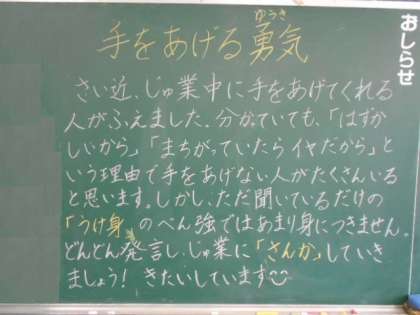 おしらせ
ゆうき
手をあげる勇気
さい近、じゅ業中に手をあげてくれる
人がふえました。分かっていても、「はずか
しいから」「まちがっていたらイヤだから」と
いう理由で手をあげない人がたくさんいる
と思います。しかし、ただ聞いているだけの
「うけ身」のべん強ではあまり身につきません。
どんどん発言し、じゅ業に「さんか」していき
ましょう！きたいしています